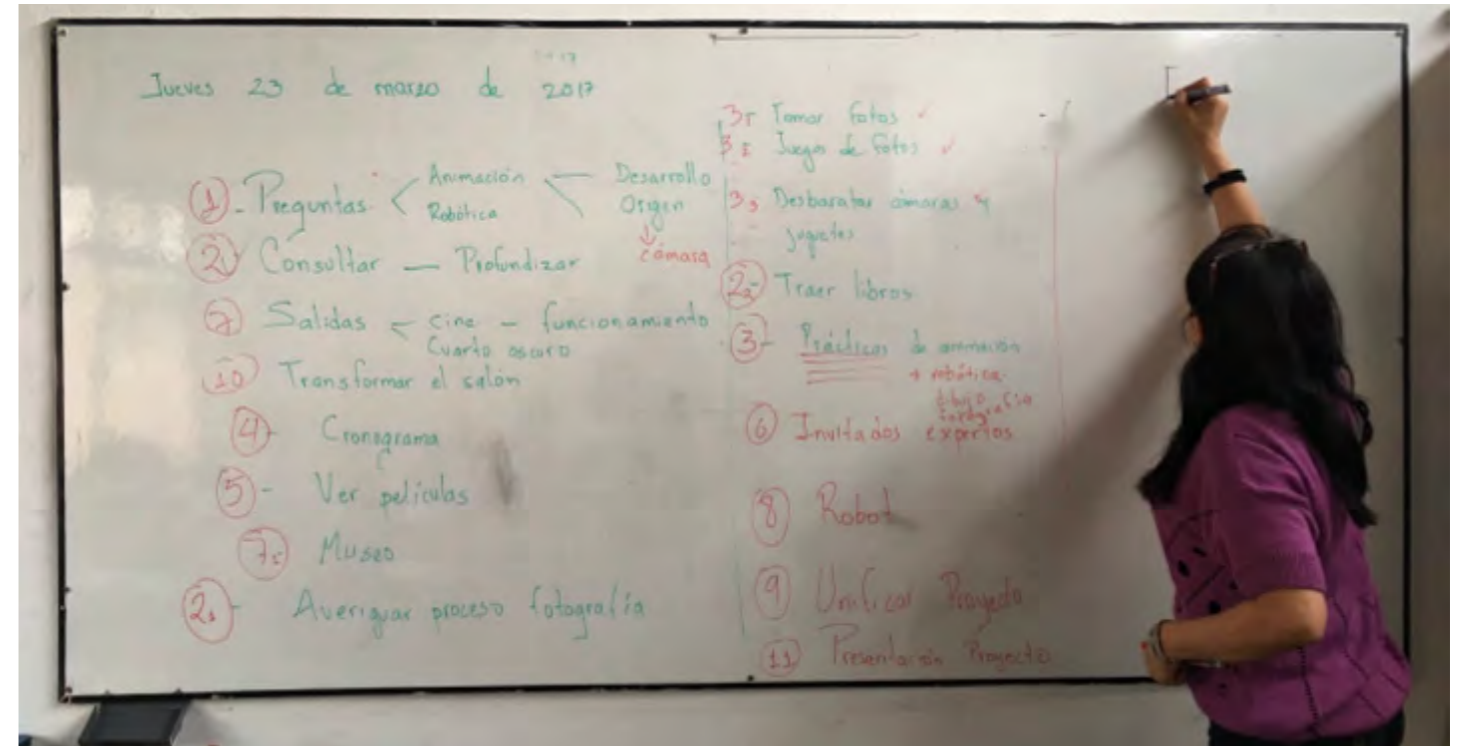 Jueves 23 de marzo de 2017
1- Preguntas < Animación — Desarrollo
Robótica Origen
↓
cámara
2 Consultar — Profundizar
7 Salidas < Cine - funcionamiento
Cuarto oscuro
10 Transformar el salón
4- Cronograma
5- Ver películas
7 Museo
2 - Averiguar proceso fotografía
3 Tomar fotos ✓
3 Juegos de fotos ✓
3 Desbaratar cámaras y
juguetes
2 - Traer libros
3- Prácticas de animación
+ robótica
dibujo
fotografía
6 Invitados expertos
8 Robot
9 Unificar Proyecto
11 Presentación Proyecto